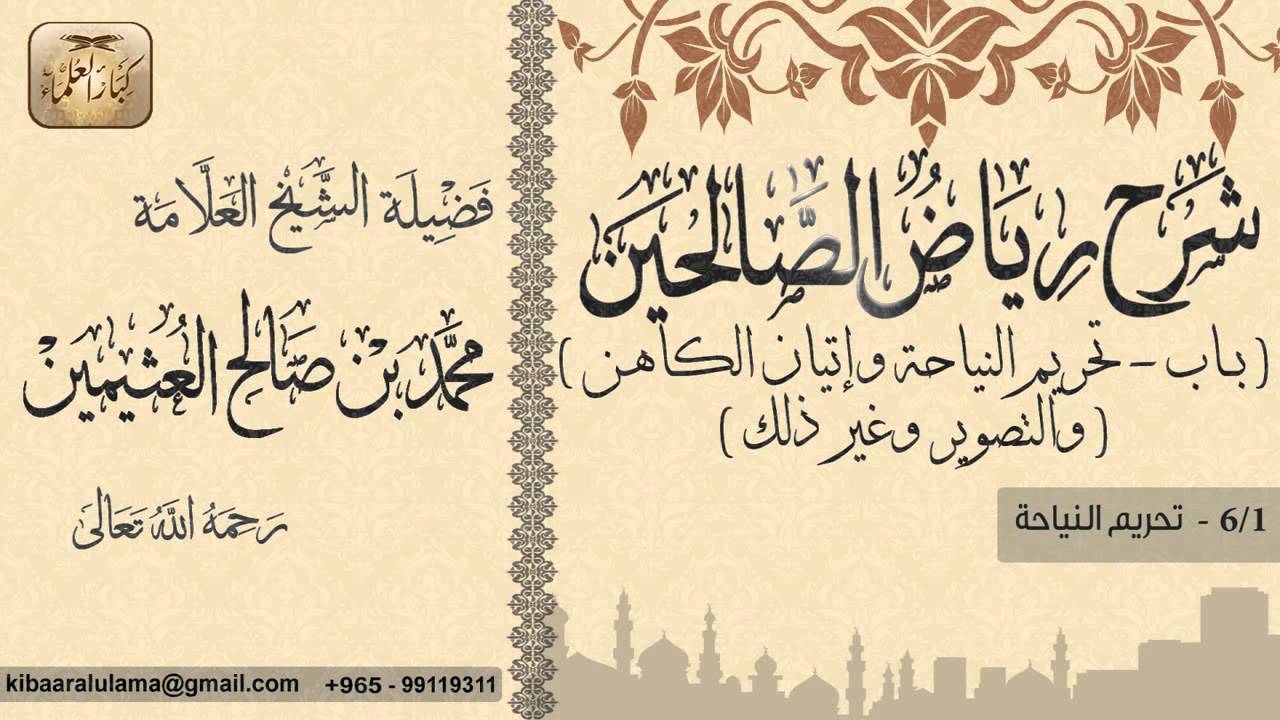 شَرْح رِيَاضُ الصَّالِحِين
( باب – تحريم النياحة وإتيان الكاهن )
( والتصوير وغير ذلك )
6/1 - تحريم النياحة
كِبَارُ العُلَمَاء
فَضِيلَة الشَّيْخ العَلَّامَة
محمَّد بَنْ صَالِح العُثَيمِين
رَحِمَهُ اللَّهُ تَعَالَى
kibaaralulama@gmail.com +965 - 99119311